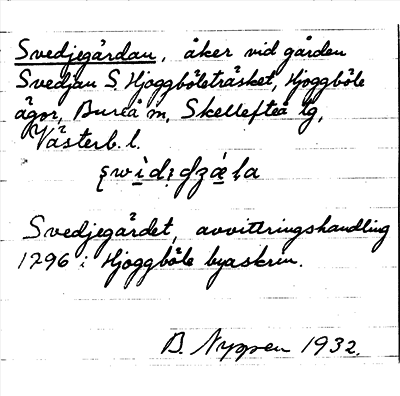 Svedjegårdan, åker vid gården
Svedjan S. Hjoggböleträsket, Hjoggböle
ägor, Bureå m, Skellefteå tg,
Västerb. l.
Svedjegärdet, avvittringshandling
1796 i Hjoggböle byaskrin.
B. Nyggen 1932.